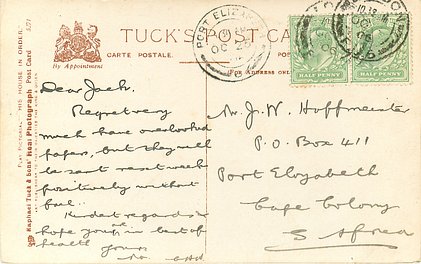 TUCK'S POST CARD
CARTE POSTALE.
(For Address only
By Appointment
Raphael Tuck & Sons' Real Photograph Post Card
PLAY PICTORIAL. "THIS HOUSE IN ORDER."
PORT ELIZABETH
OC 25
LONDON
HALF PENNY
HALF PENNY
Dear Jack.
Regret very
much have overlooked
papers, but they will
be sent next week
positively without
fail.
Kindest regards &
hope you're in best of
health
yours
Mr. J. W. Hoffmeister
P.O. Box 411
Port Elizabeth
Cape Colony
S Africa